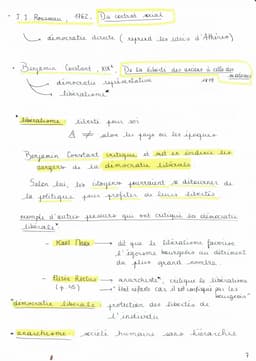 • J.J Rousseau, 1762. Du contrat social
↳ démocratie directe (reprend les idées d'Athènes)
• Benjamin Constant, XIX° De la liberté des anciens à celle des modernes
↳ démocratie représentative 1819
↳ libéralisme*
*libéralisme : liberté pour soi
⚠ ≠ selon les pays ou les époques
Benjamin Constant critique et met en évidence les
dangers de la démocratie libérale
Selon lui, les citoyens pourraient se détourner de
la politique pour profiter de leurs libertés
exemple d'autres penseurs qui ont critiqué la démocratie
libérale*
→ Karl Marx → dit que le libéralisme favorise
l'égoïsme bourgeois au détriment
du plus grand nombre
→ Élisée Reclus → anarchiste*, critique le libéralisme
(p. 45) → l'État car il est par les
bourgeois"
*démocratie libérale : protection des libertés de
l'individu
* anarchisme : société humaine sans hiérarchie
7